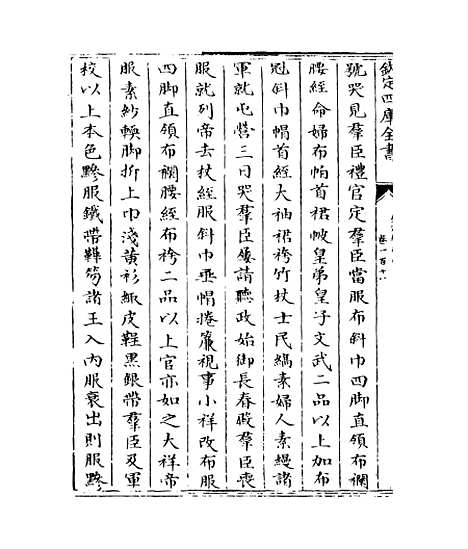 欽定四庫全書
卷一百十八
號哭見羣臣禮官定羣臣當服布斜巾四脚直領布襴
腰絰命婦布帕首裙帔皇弟皇子文武二品以上加布
冠斜巾帽首絰大袖裙袴竹杖士民縞素婦人素縵諸
軍就屯營三日哭羣臣屢請聽政始御長春殿羣臣喪
服就列帝去杖絰服斜巾垂帽捲簾視事小祥改布服
四脚直領布襴腰絰布袴二品以上官亦如之大祥帝
服素紗軟脚折上巾淺黃衫緅皮鞓黑銀帶羣臣及軍
校以上本色黲服鐵帶靴笏諸王入內服衰出則服黲